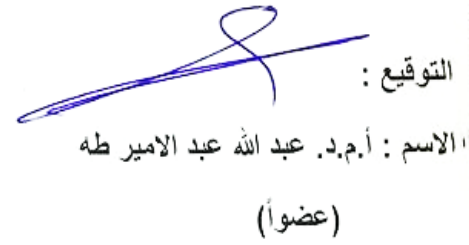 التوقيع :
الاسم : أ.م.د. عبد الله عبد الامير طه
(عضواً)